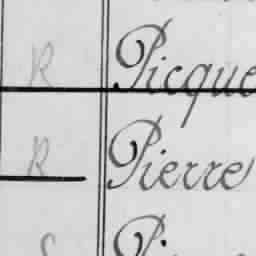 R Picque
R Pierre